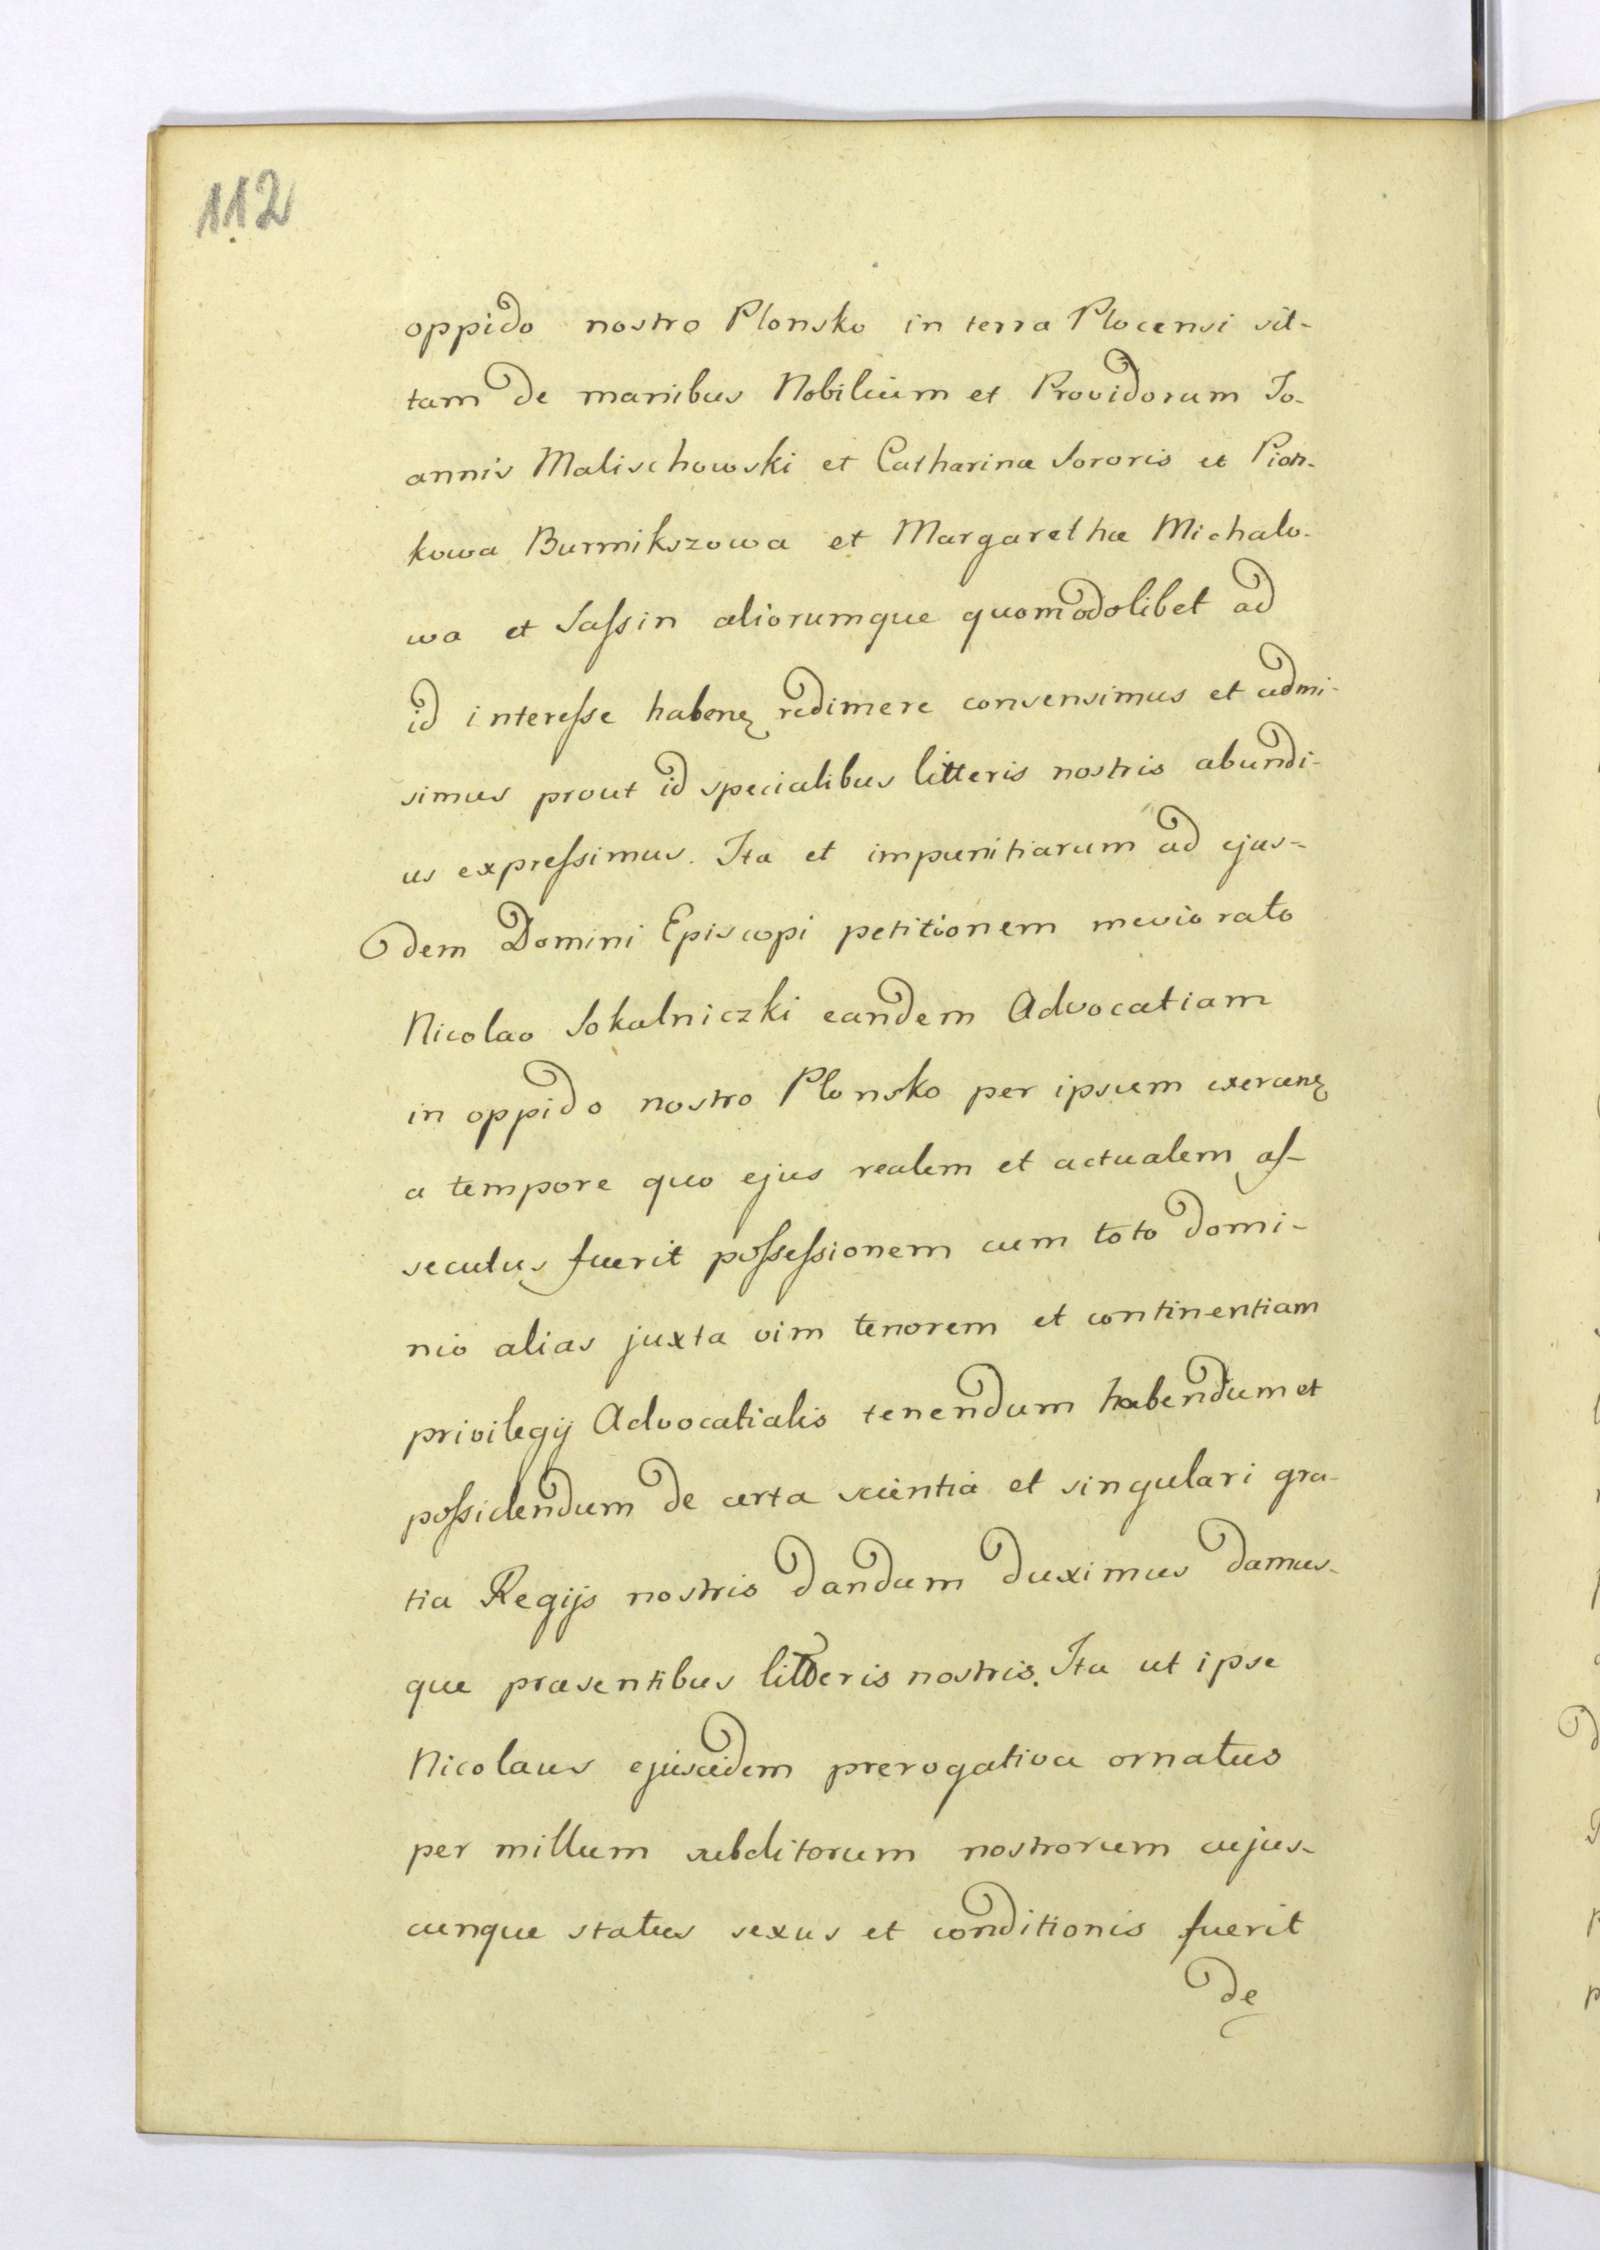 112
oppido nostro Plonsko in terra Plocensi sit-
tam de manibus Nobilium et Providorum Jo-
annis Malischowski et Catharinæ Sororis et Pion-
kowa Burmikszowa et Margarethæ Michalo-
wa et Sassin aliorumque quomodolibet ad
id interesse habenꝫ redimere consensimus et admi-
simus prout id specialibus litteris nostris abundi-
us expressimus. Ita et impunitiarum ad ejus-
dem Domini Episcopi petitionem meviorato
Nicolao Sokalniczki eandem Advocatiam
in oppido nostro Plonsko per ipsum exercenꝫ
a tempore quo ejus realem et actualem as-
secutus fuerit possessionem cum toto domi-
nio alias juxta vim tenorem et continentiam
privilegij Advocatialis tenendum habendum et
possidendum de certa scientia et singulari gra-
tia Regijs nostris dandum duximus damus-
que præsentibus litteris nostris. Ita ut ipse
Nicolaus ejuscidem prerogativa ornatus
per millum subditorum nostrorum cujus-
cunque status sexus et conditionis fuerit
de